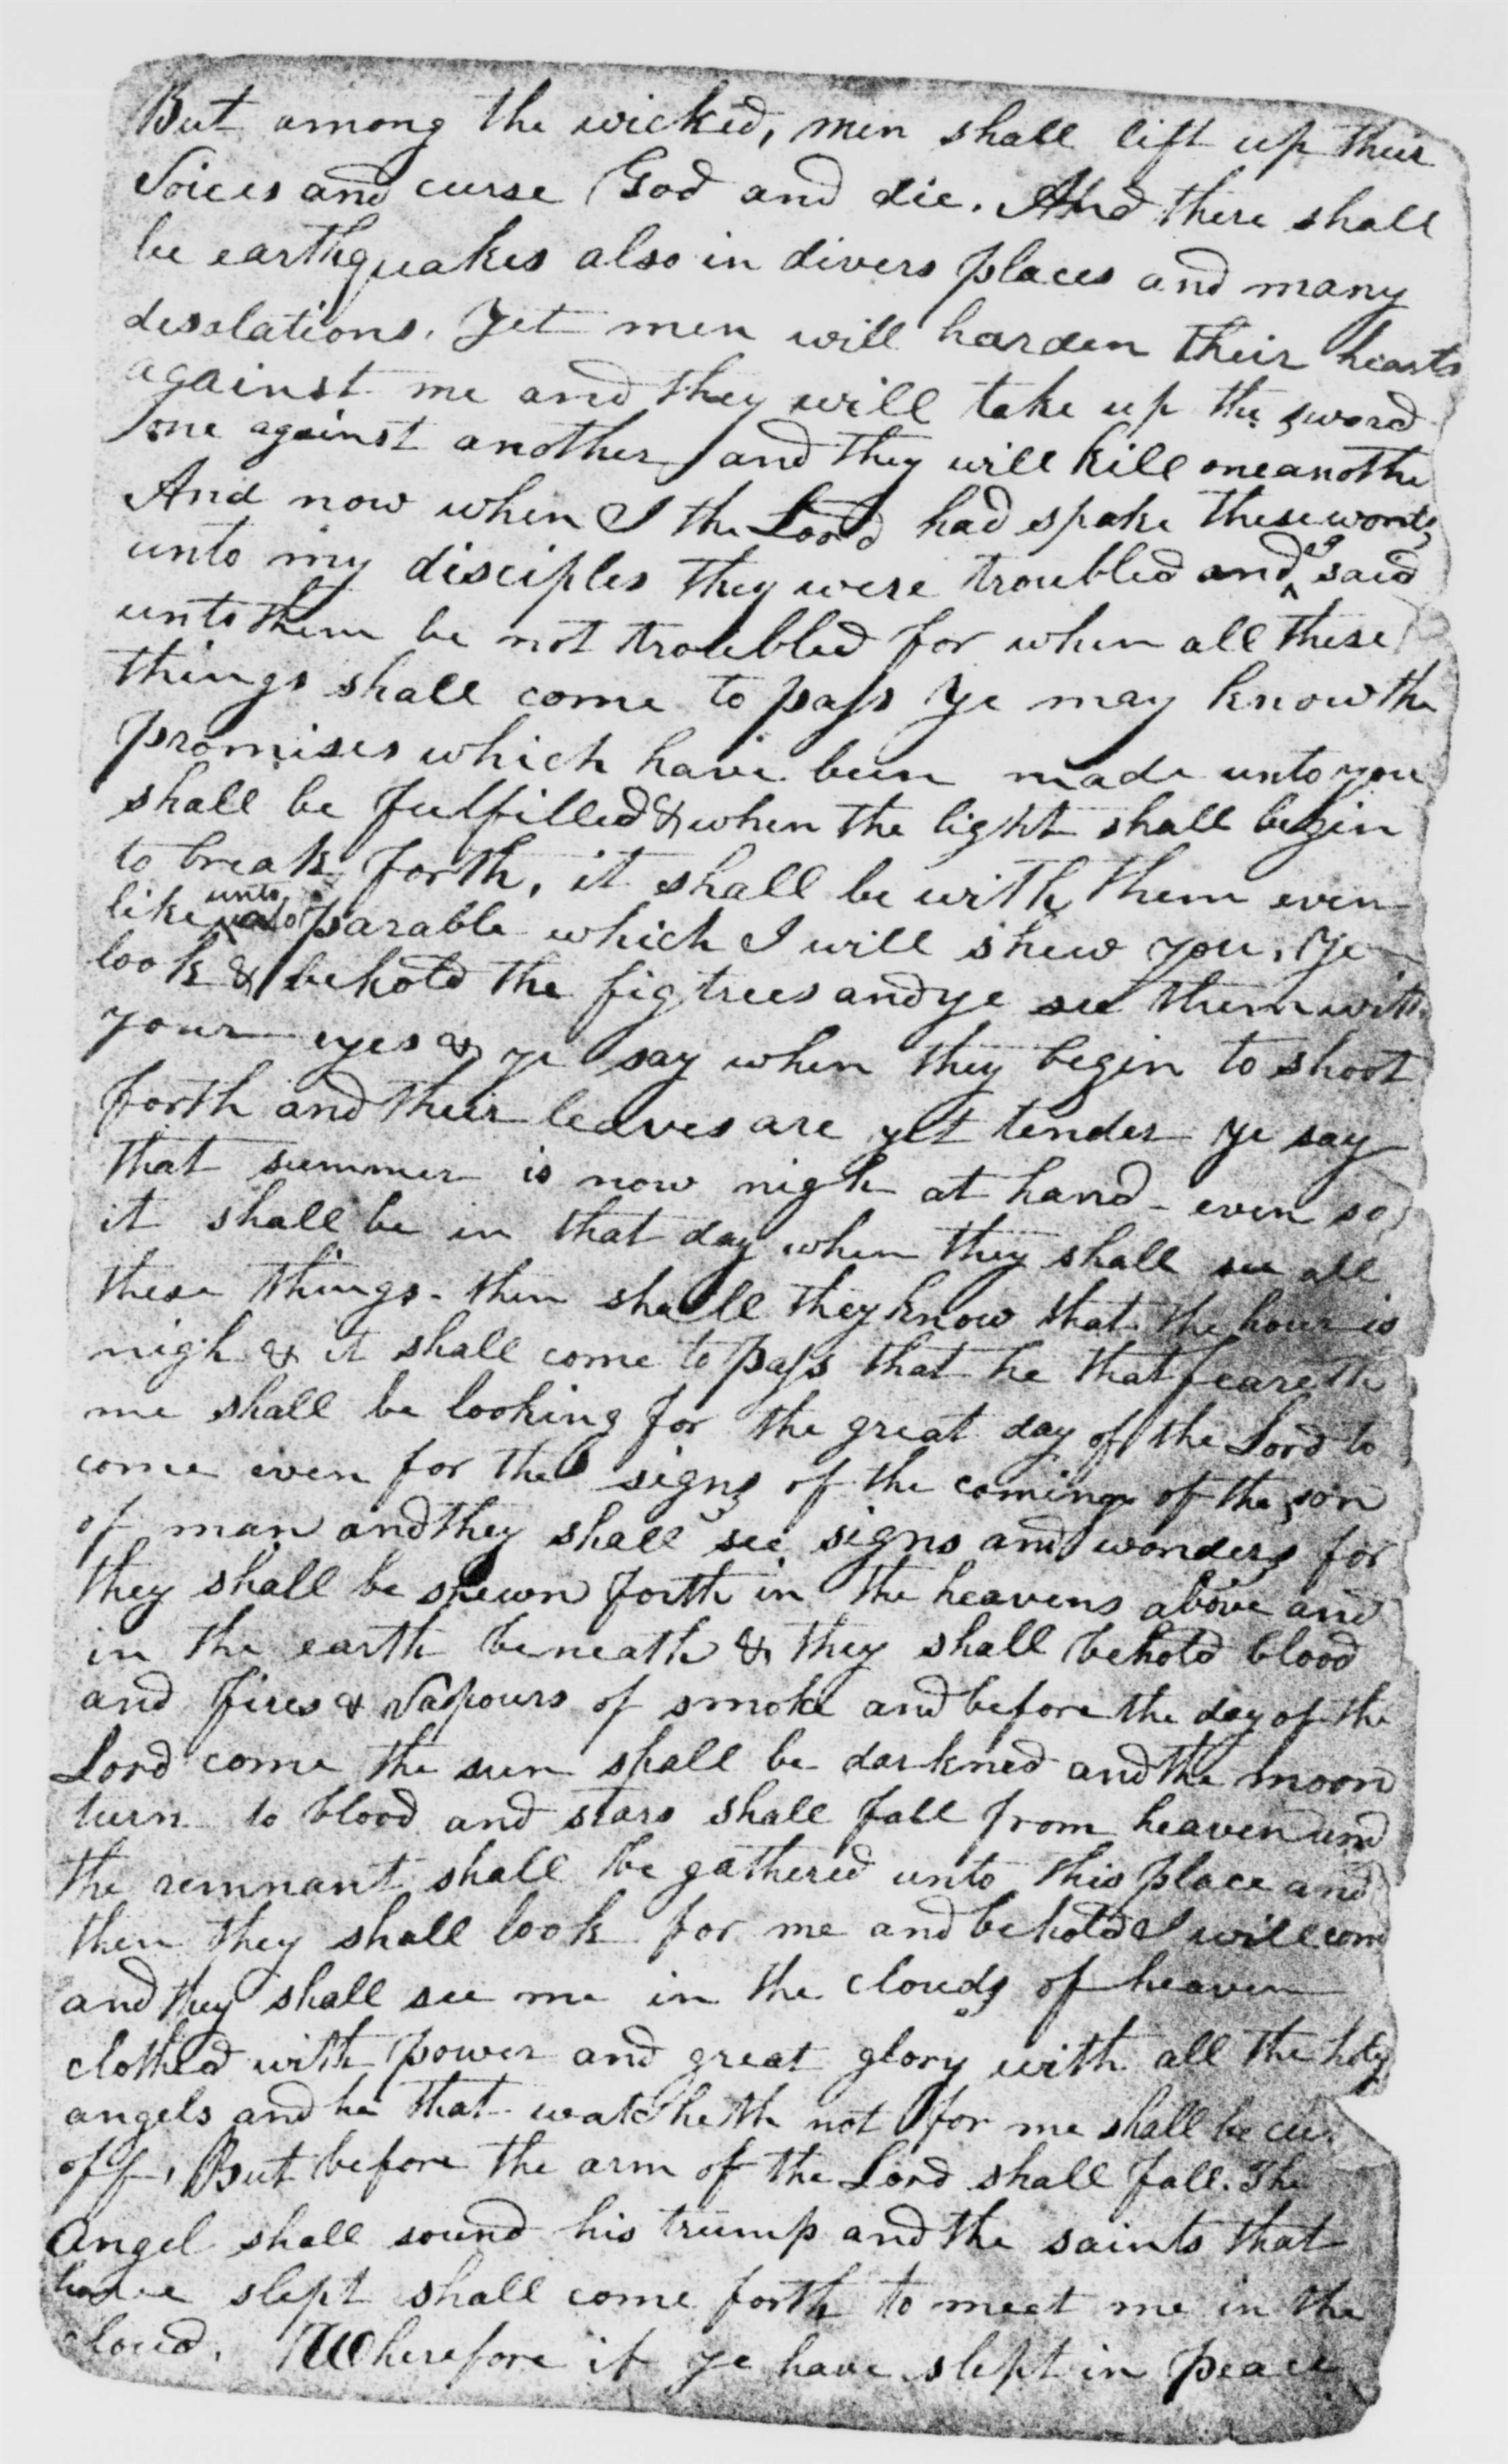 But among the wicked, men shall lift up their
Voices and curse God and die. And there shall
be earthquakes also in divers places and many
desolations. Yet men will harden their hearts
against me and they will take up the sword
one against another and they will kill one anothe
And now when I the Lord had spake these words
unto my disciples they were troubled and said
unto them be not troubled for when all these
things shall come to pass ye may know the
promises which have been made unto you
shall be fulfilled & when the light shall begin
to break forth, it shall be with them even
like unto parable which I will shew you, ye
look & behold the figtrees and ye see them with
your eyes & ye say when they begin to shoot
forth and their leaves are yet tender ye say
that summer is now nigh at hand - even so
it shall be in that day when they shall see all
these things - then shall they know that the hour is
nigh & it shall come to pass that he that feareth
me shall be looking for the great day of the Lord to
come even for the signs of the coming of the son
of man and they shall see signs and wonders for
they shall be shewn forth in the heavens above and
in the earth beneath & they shall behold blood
and fires & Vapours of smoke and before the day of the
Lord come the sun shall be darkned and the moon
turn to blood and stars shall fall from heaven and
the remnant shall be gathered unto this place and
then they shall look for me and behold I will come
and they shall see me in the clouds of heaven
clothed with power and great glory with all the holy
angels and he that watcheth not for me shall be cut
off, But before the arm of the Lord shall fall. The
Angel shall sound his trump and the saints that
have slept shall come forth to meet me in the
cloud. Wherefore if ye have slept in peace